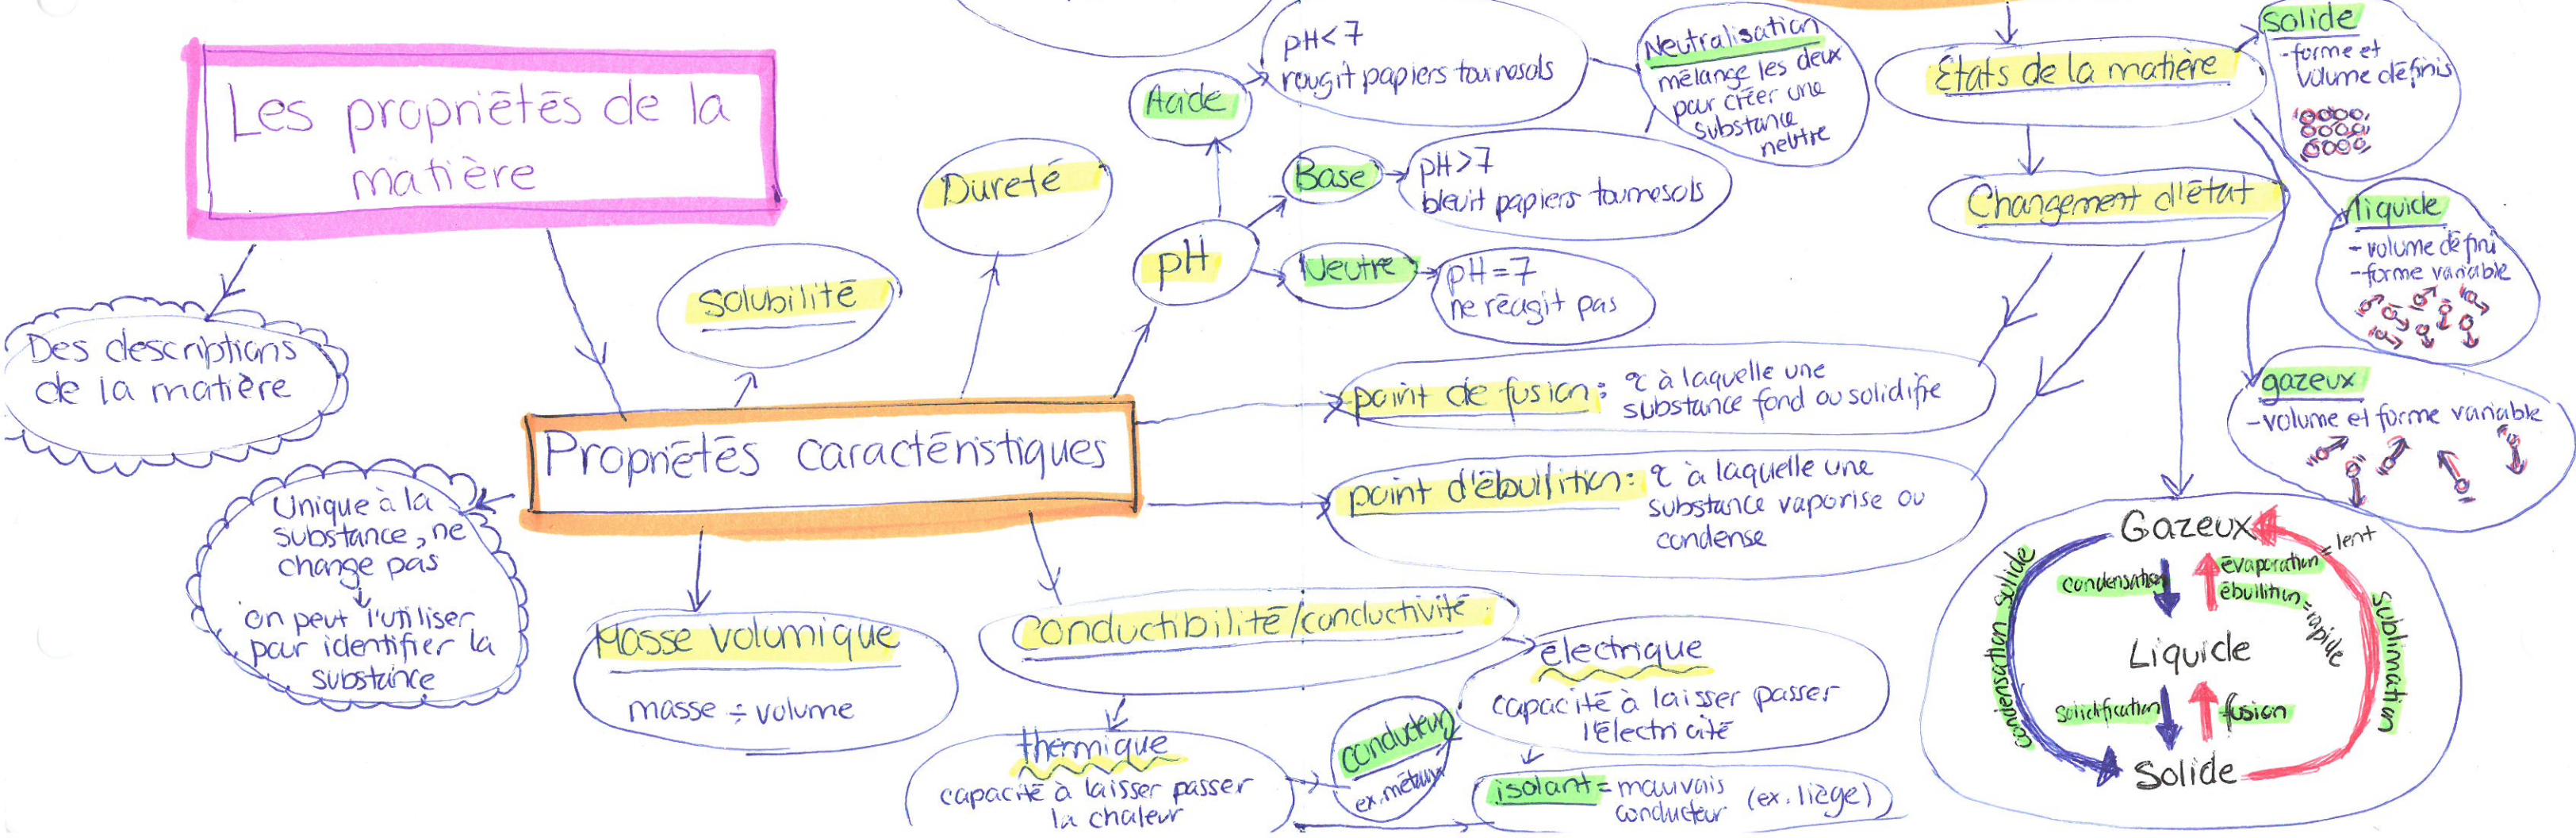 Les propriétés de la
matière
Des descriptions
de la matière
Propriétés caractéristiques
Unique à la
substance, ne
change pas
on peut l'utiliser
pour identifier la
substance
Solubilité
Dureté
pH
Acide
pH<7
rougit papiers tournesols
Base
pH>7
bleuit papiers tournesols
Neutre
pH=7
ne réagit pas
Neutralisation
mélange les deux
pour créer une
substance
neutre
point de fusion:
à laquelle une
substance fond ou solidifie
point d'ébullition:
à laquelle une
substance vaporise ou
condense
Masse volumique
masse ÷ volume
Conductibilité/conductivité
thermique
capacité à laisser passer
la chaleur
électrique
capacité à laisser passer
l'électricité
conducteur
ex. métaux
isolant = mauvais
conducteur (ex. liège)
États de la matière
solide
- forme et
volume définis
liquide
- volume défini
- forme variable
gazeux
- volume et forme variable
Changement d'état
Gazeux
condensation
évaporation = lent
ébullition = rapide
Liquide
solidification
fusion
Solide
condensation solide
sublimation